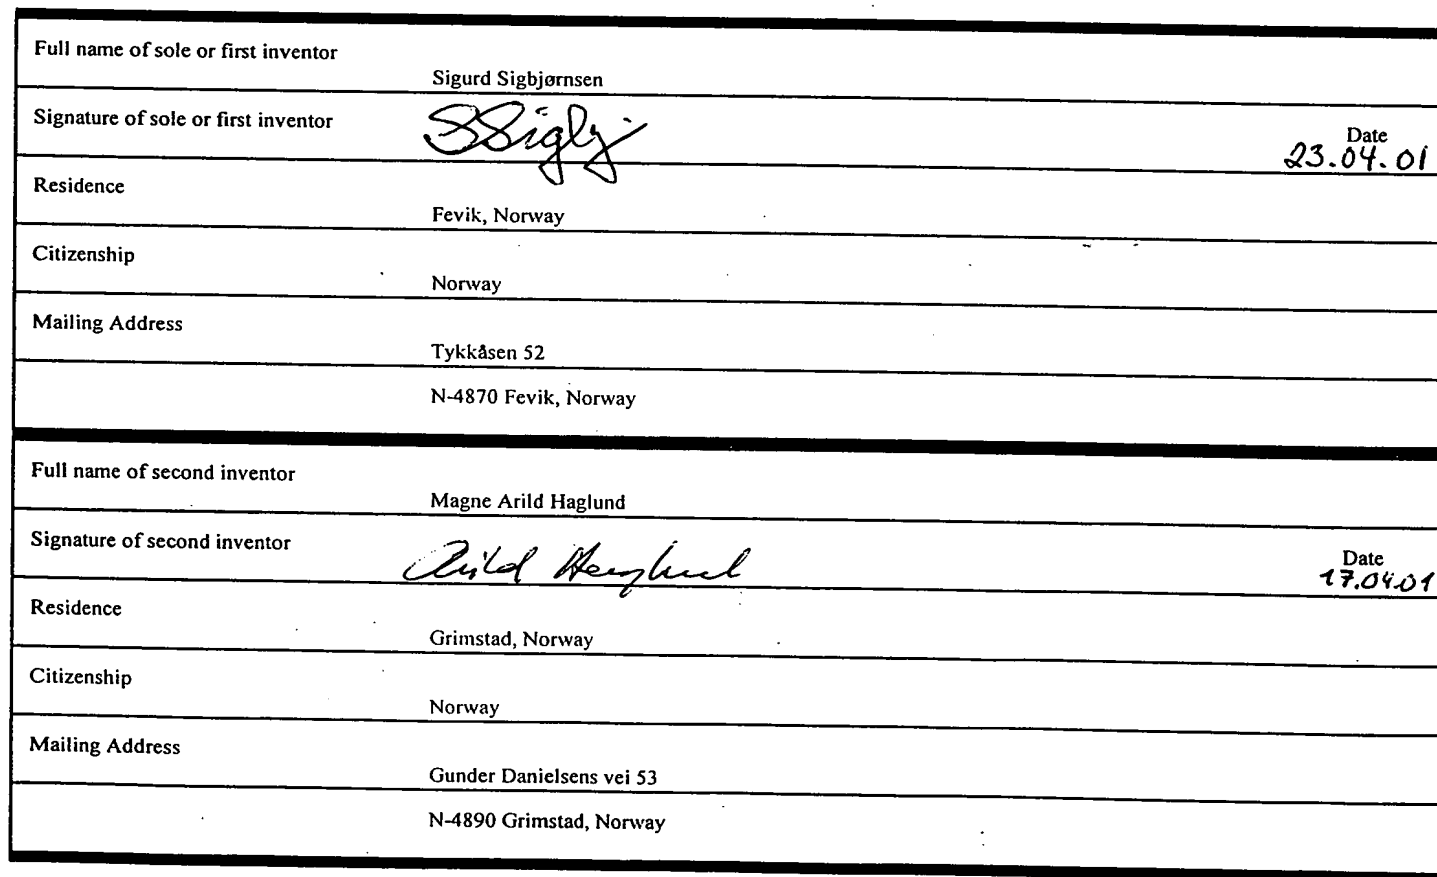 Full name of sole or first inventor
Sigurd Sigbjørnsen
Signature of sole or first inventor
Date
23.04.01
Residence
Fevik, Norway
Citizenship
Norway
Mailing Address
Tykkåsen 52
N-4870 Fevik, Norway
Full name of second inventor
Magne Arild Haglund
Signature of second inventor
Arild Haglund
Date
17.04.01
Residence
Grimstad, Norway
Citizenship
Norway
Mailing Address
Gunder Danielsens vei 53
N-4890 Grimstad, Norway